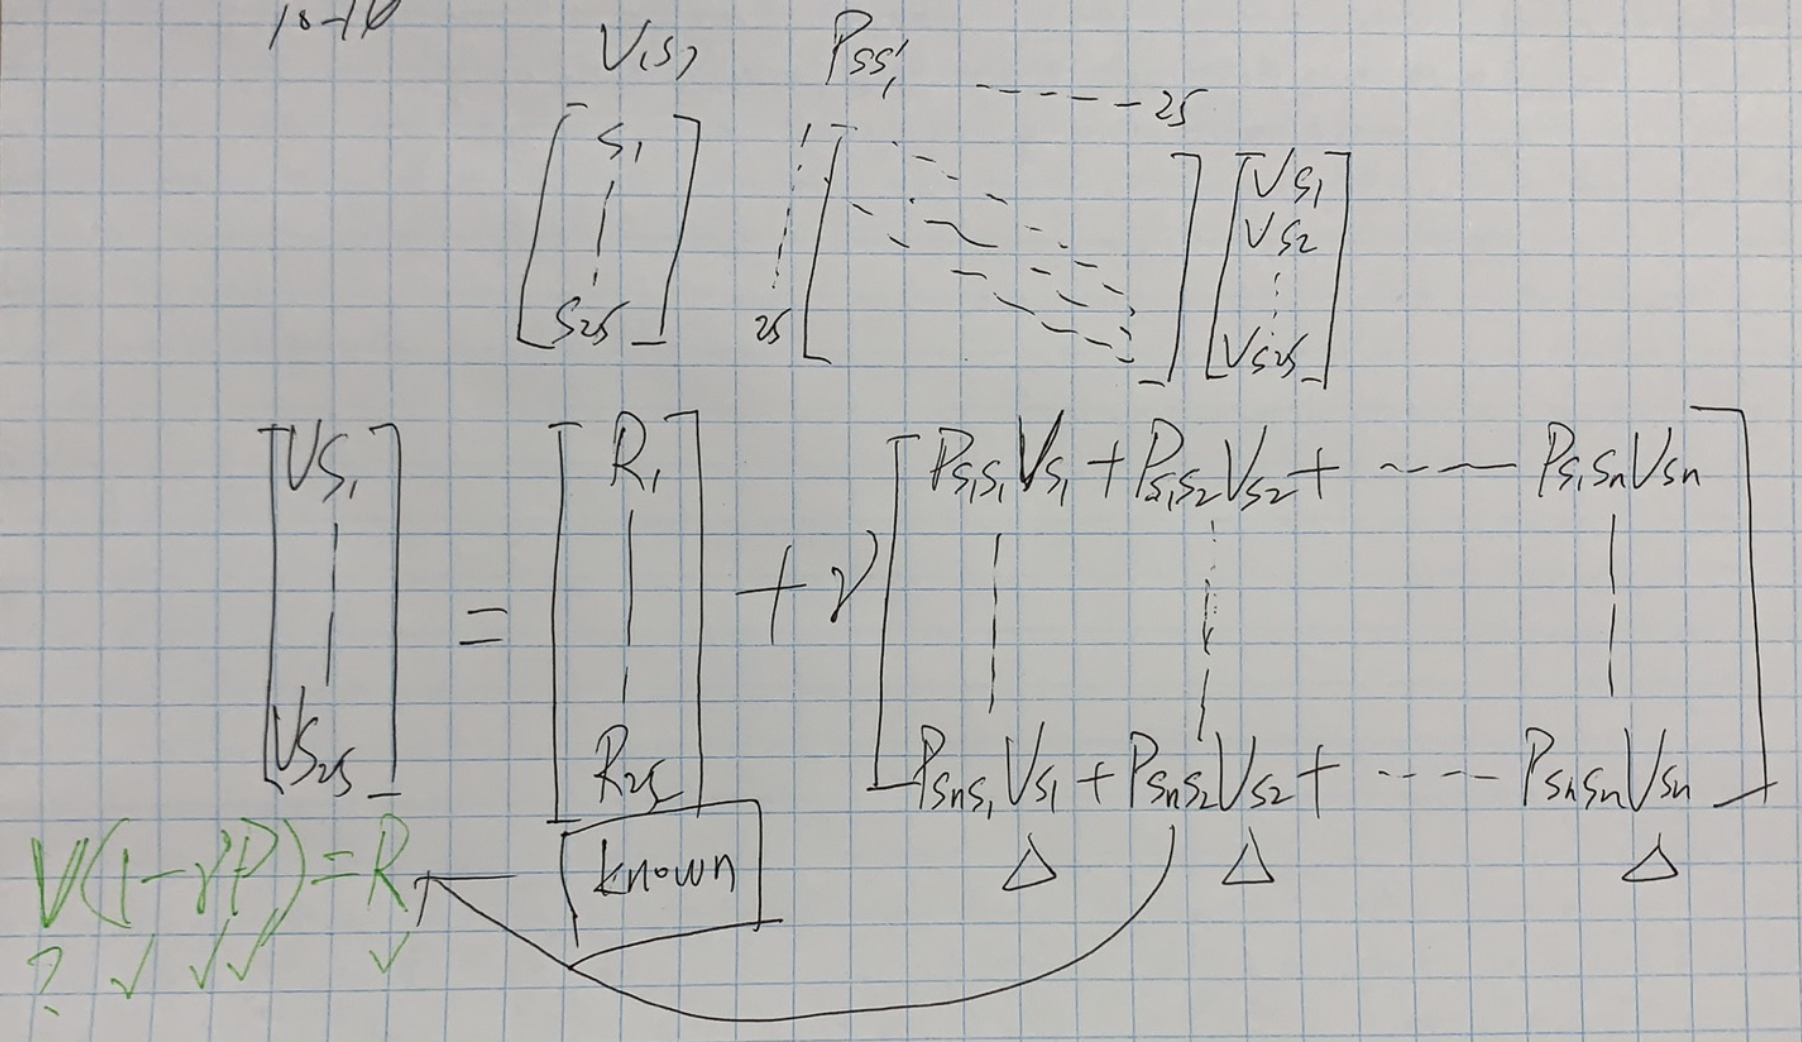 V(s) Pss'
- - - - - 25
S₁
S₂₅
25
Vs₁
Vs₂
Vs₂₅
Vs₁
Vs₂₅
=
R₁
R₂₅
+ γ
Ps₁s₁Vs₁ + Ps₁s₂Vs₂ + - - - - Ps₁snVsn
Psns₁Vs₁ + Psns₂Vs₂ + - - - - PsnsnVsn
known
Δ Δ Δ
V(1-γP)=R
? ✓ ✓✓ ✓